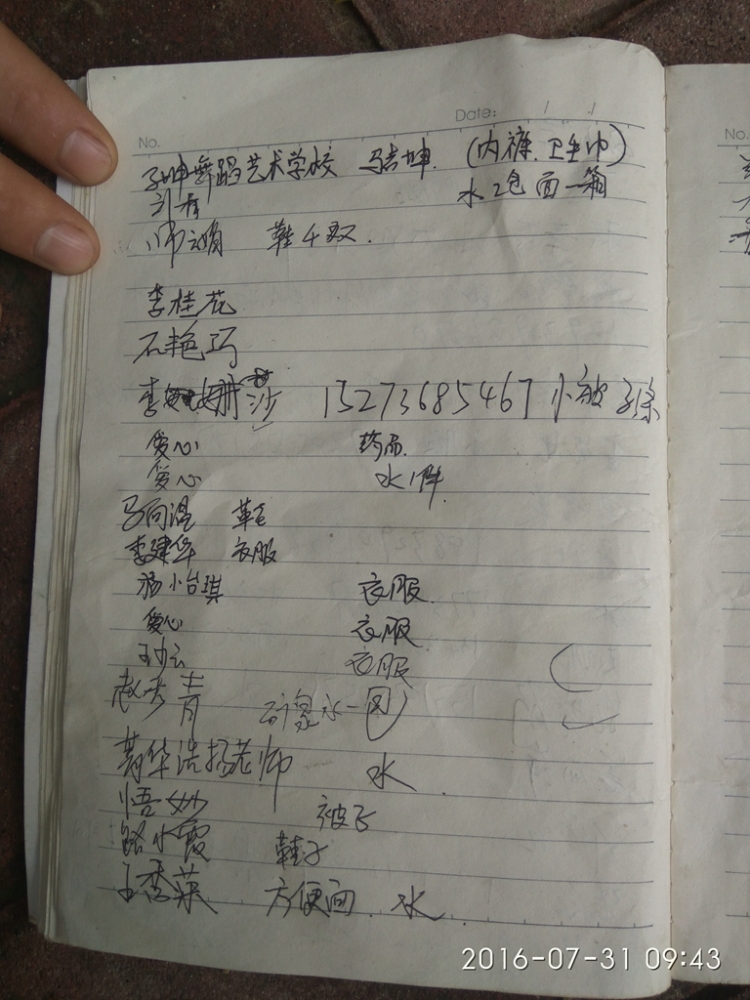 No.
Date: / /
舞蹈艺术学校 马吉坤 (内裤、卫生巾)
水2包 面一箱
鞋4双.
李桂花
石艳巧
李 娜莎 15273685467 小被子
爱心 药品
爱心 水1件
马向温 鞋
李建华 衣服
杨小台琪 衣服.
爱心 衣服
衣服
赵秀青 矿泉水一
菁华浩扬老师 水
悟妙 被子
路小霞 鞋子
王秀荣 方便面、水
No.
2016-07-31 09:43